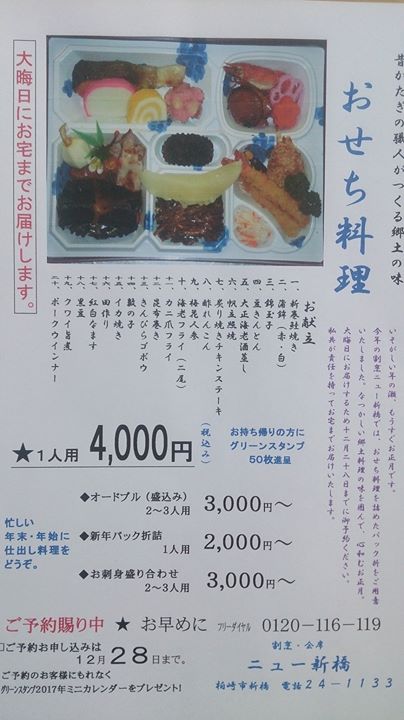 昔かたぎの職人がつくる郷土の味
おせち料理
大晦日にお宅までお届けします。
いそがしい年の瀬、もうすぐお正月です。
今年の割烹ニュー新橋では、おせち料理を詰めたパック折をご用意
いたしました。なつかしい郷土料理の味を囲んで、心和むお正月。
大晦日にお届けするため十二月二十八日までに御予約ください。
私共が責任を持ってお宅までお届けいたします。
お献立
一、新巻鮭焼き
二、蒲鉾(赤・白)
三、錦玉子
四、豆きんとん
五、大正海老酒蒸し
六、帆立照焼
七、炙り焼きチキンステーキ
八、酢れんこん
九、梅花人参
十、海老フライ(二尾)
十一、カニ爪フライ
十二、昆布巻き
十三、きんぴらゴボウ
十四、数の子
十五、イカ焼き
十六、田作り
十七、紅白なます
十八、黒豆
十九、クワイ旨煮
二十、ポークウインナー
★1人用 4,000円
(税込み)
お持ち帰りの方に
グリーンスタンプ
50枚進呈
忙しい
年末・年始に
仕出し料理を
どうぞ。
◆オードブル(盛込み)
2~3人用 3,000円~
◆新年パック折詰
1人用 2,000円~
◆お刺身盛り合わせ
2~3人用 3,000円~
ご予約賜り中 ★ お早めに フリーダイヤル 0120-116-119
□ご予約お申し込みは
12月28日まで。
ご予約のお客様にもれなく
グリーンスタンプ2017年ミニカレンダーをプレゼント!
割烹・会席
ニュー新橋
柏崎市新橋 電話24-1133